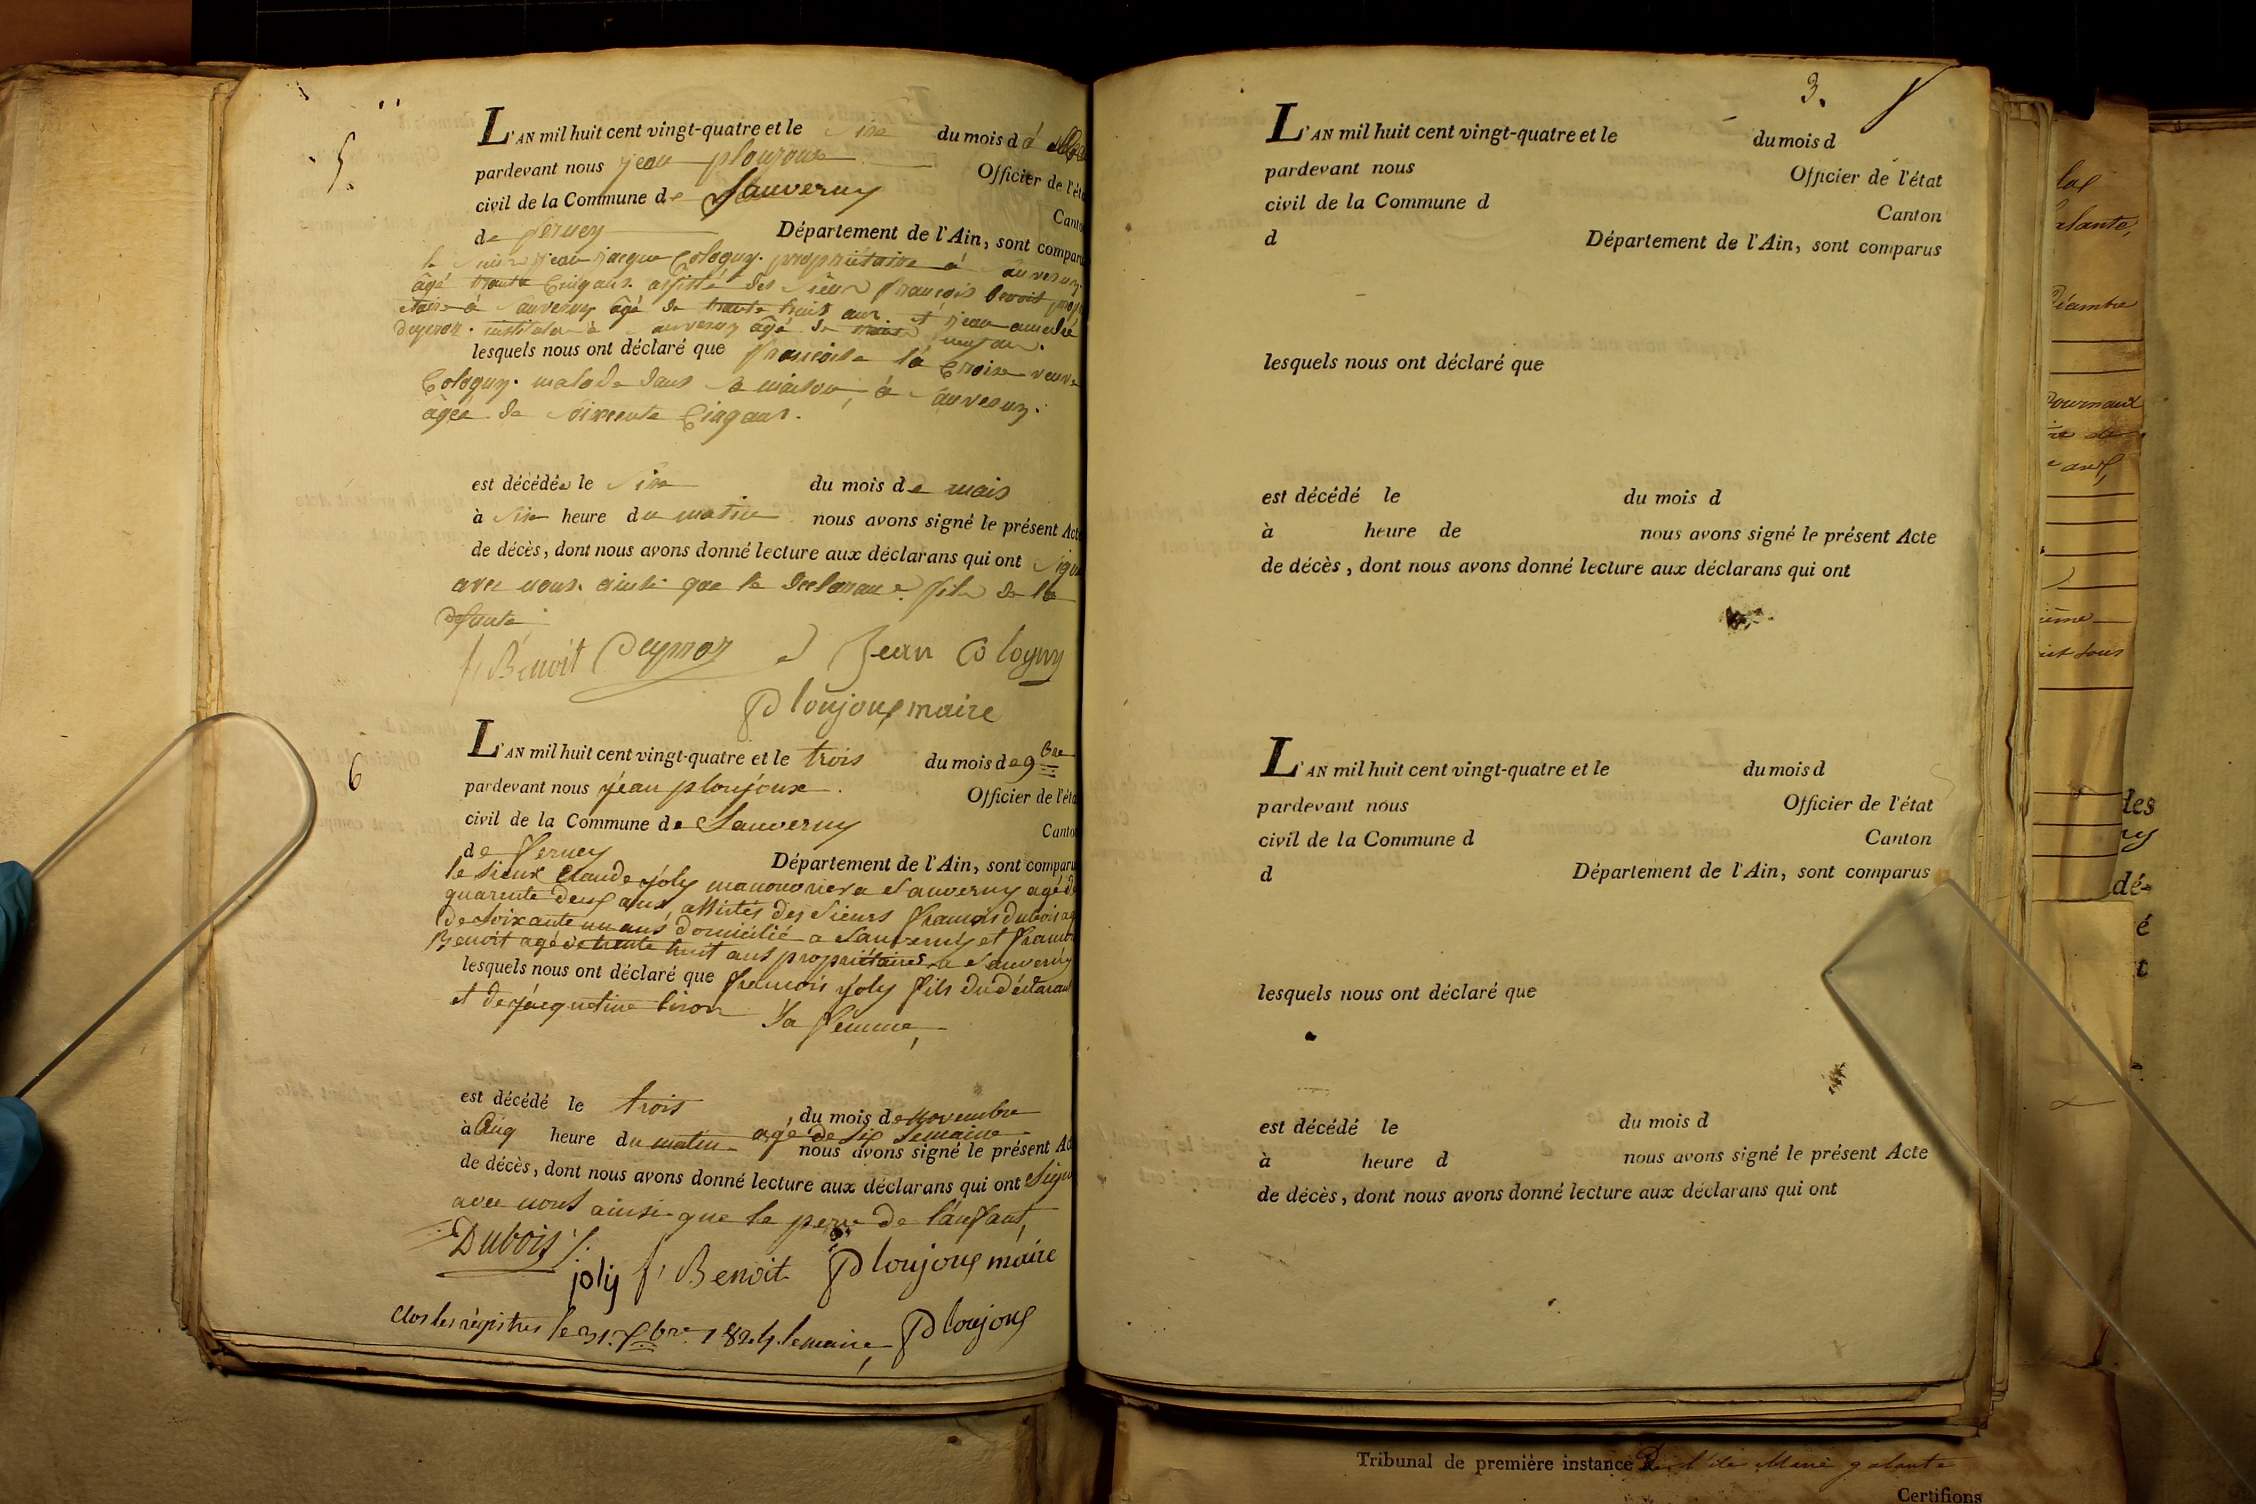 5.
L'AN mil huit cent vingt-quatre et le Six du mois d
pardevant nous jean ploujoux Officier de l'éta
civil de la Commune de Sauverny Canto
de ferney Département de l'Ain, sont comparu
le Sieur jean jacque Cologny. propriétaire a Sauverny
âgé trante Cinq ans. assisté des Sieur françois benoit prop
etaire a Sauverny âgé de trante huit ans et jean amedé
instituteur a Sauverny âgé de
lesquels nous ont déclaré que françoise la Croix veuve
Cologny. malade dans sa maison, a Sauverny.
âgée de Soixente Cinq ans.
est décédée le Six du mois de mais
à Six heure du matin nous avons signé le présent Acte
de décès, dont nous avons donné lecture aux déclarans qui ont Signé
avec nous. ainsi que le declarans fils de la
defunte
f. Benoit Deymoz et Jean Cologny
Ploujoux maire
6
L'AN mil huit cent vingt-quatre et le trois du mois de 9bre
pardevant nous jean ploujoux. Officier de l'éta
civil de la Commune de Sauverny Canto
de ferney Département de l'Ain, sont comparu
le Sieur Claude joly manouvrier a Sauverny agé de
quarente deux ans, assistés des Sieurs francois dubois ag
de soixante un ans domicilié a Sauverny et francois
Benoit agé de trente huit ans propriétaires a Sauverny
lesquels nous ont déclaré que francois joly fils du déclarant
et de jacquetine Sa femme,
est décédé le trois du mois de novembre
à Cinq heure du matin agé de Six Semaine
nous avons signé le présent Ac
de décès, dont nous avons donné lecture aux déclarans qui ont Signé
avec nous ainsi que le pere de l'anfant,
Dubois f.
joly f. Benoit Ploujoux maire
Clos les régistres le 31. Xbre 1824 le maire, Ploujoux
3.
L'AN mil huit cent vingt-quatre et le du mois d
pardevant nous Officier de l'état
civil de la Commune d Canton
d Département de l'Ain, sont comparus
lesquels nous ont déclaré que
est décédé le du mois d
à heure de nous avons signé le présent Acte
de décès, dont nous avons donné lecture aux déclarans qui ont
L'AN mil huit cent vingt-quatre et le du mois d
pardevant nous Officier de l'état
civil de la Commune d Canton
d Département de l'Ain, sont comparus
lesquels nous ont déclaré que
est décédé le du mois d
à heure d nous avons signé le présent Acte
de décès, dont nous avons donné lecture aux déclarans qui ont
Tribunal de première instance De l'ile Marie galante
Certifions